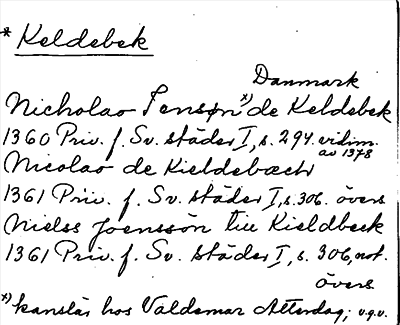 * Keldebek
Danmark
Nicholao Jensøn *) de Keldebek
1360 Priv. f. Sv. städer I, s. 294. vidim. av 1378
Nicolao de Kieldebæch
1361 Priv. f. Sv. städer I, s. 306. övers.
Nielss Joenssön till Kieldbeck
1361 Priv. f. Sv. städer I, s. 306, not. övers
*) kanslär hos Valdemar Atterdag; v.g.v.